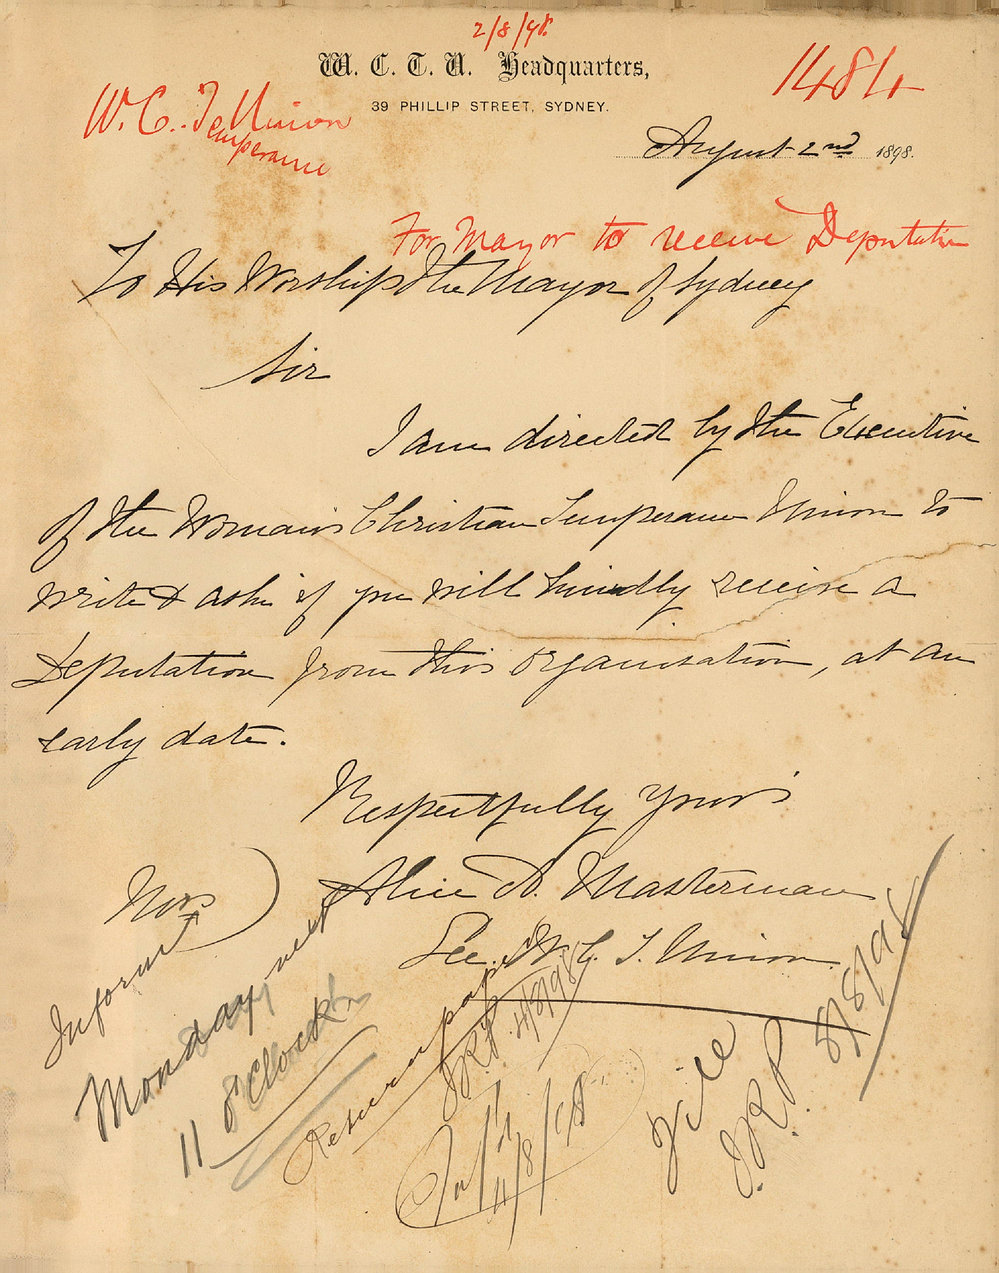 2/8/98.
W. C. T. U. Headquarters,
1484
39 PHILLIP STREET, SYDNEY.
W. C. T. Union
Temperance
August 2nd 1898.
For Mayor to receive Deputation
To His Worship the Mayor of Sydney
Sir
I am directed by the Executive
of the Woman's Christian Temperance Union to
write & ask if you will kindly receive a
Deputation from this organisation, at an
early date.
Respectfully Yours
(Mrs) Alice A. Masterman
Sec. W. C. T. Union.
Inform
Monday next
11 o'Clock
Return papers
JRP 4/8/98
4/8/98
File
JRP. 8/8/98